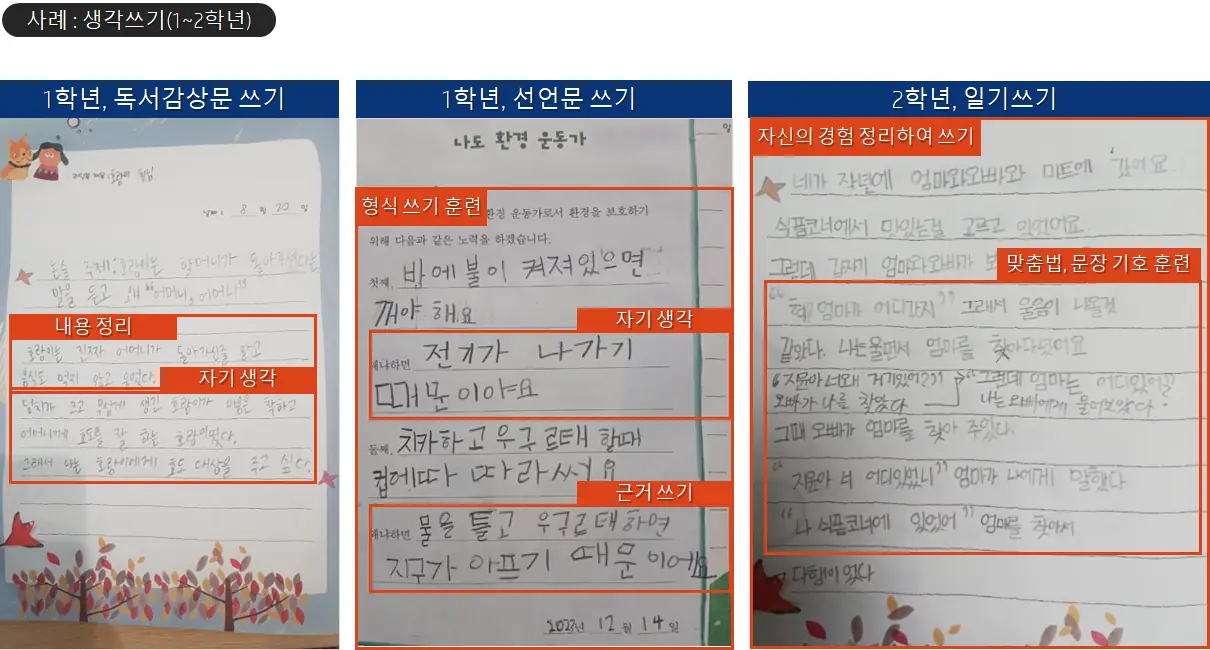 사례 : 생각쓰기(1~2학년)
1학년, 독서감상문 쓰기
8 월 20 일
논술 주제:호랑이는 할머니가 돌아가셨다는
말을 듣고 왜 "어머니, 어머니"
내용 정리
호랑이는 진짜 어머니가 돌아가신줄 알고
음식도 먹지 않고 울었다.
자기 생각
덩치가 크고 무섭게 생긴 호랑이가 마음은 착하고
어머니께 효도를 잘 하는 호랑이였다.
그래서 나는 호랑이에게 효도 대상을 주고 싶다.
1학년, 선언문 쓰기
일
나도 환경 운동가
형식 쓰기 훈련
환경 운동가로서 환경을 보호하기
위해 다음과 같은 노력을 하겠습니다.
첫째, 밤에 불이 켜져있으면
꺼야 해요
자기 생각
왜냐하면 전기가 나가기
때문이야요
둘째, 치카하고 우구르태 할때
컵에따 따라써요
근거 쓰기
왜냐하면 물을 틀고 우구르태하면
지구가 아프기 때문이에요
2023년 12월 14일
2학년, 일기쓰기
자신의 경험 정리하여 쓰기
네가 작년에 엄마와오빠와 마트에 갔어요
식품코너에서 맛있는걸 고르고 있었어요
그런데 갑자기 엄마와오빠가
맞춤법, 문장 기호 훈련
"헉 엄마가 어디갔지" 그래서 울음이 나올것
같았다. 나는울면서 엄마를 찾아다녔어요
"지윤아 너왜 거기있어?" "그런데 엄마는 어디있어?
오빠가 나를 찾았다 나는 오빠에게 물어보았다.
그때 오빠가 엄마를 찾아 주었다.
"지윤아 너 어디있었니" 엄마가 나에게 말했다
"나 식품코너에 있었어" 엄마를 찾아서
다행이었다